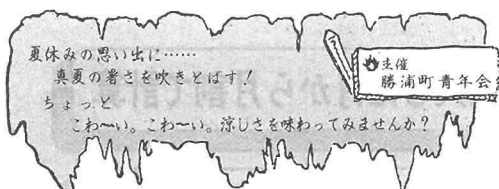 夏休みの思い出に……
真夏の暑さを吹きとばす！
ちょっと
こわ〜い。こわ〜い。涼しさを味わってみませんか？
主催
勝浦町青年会